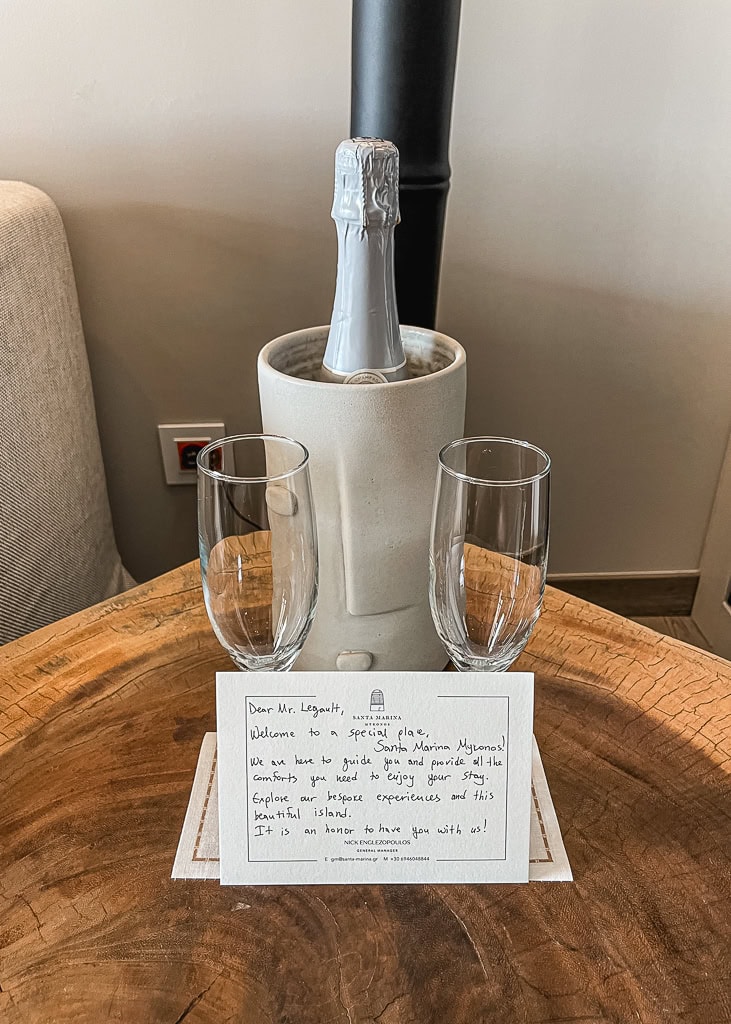 SANTA MARINA
MYKONOS
Dear Mr. Legault,
Welcome to a special place,
Santa Marina Mykonos!
We are here to guide you and provide all the
comforts you need to enjoy your stay.
Explore our bespoke experiences and this
beautiful island.
It is an honor to have you with us!
NICK ENGLEZOPOULOS
GENERAL MANAGER
E gm@santa-marina.gr M +30 6946048844